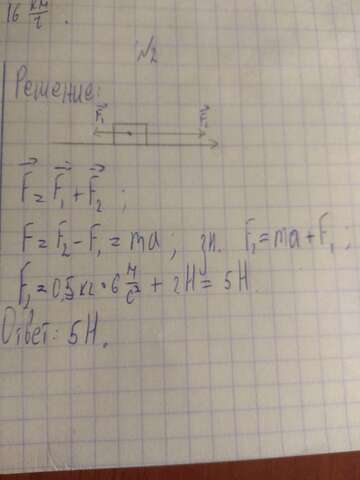 16 км/ч.
№2
Решение:
F₁ F₂
F = F₁ + F₂ ;
F = F₂ - F₁ = ma ; зн. F₂ = ma + F₁ ;
F₂ = 0,5 кг · 6 м/с² + 2Н = 5Н.
Ответ: 5Н.